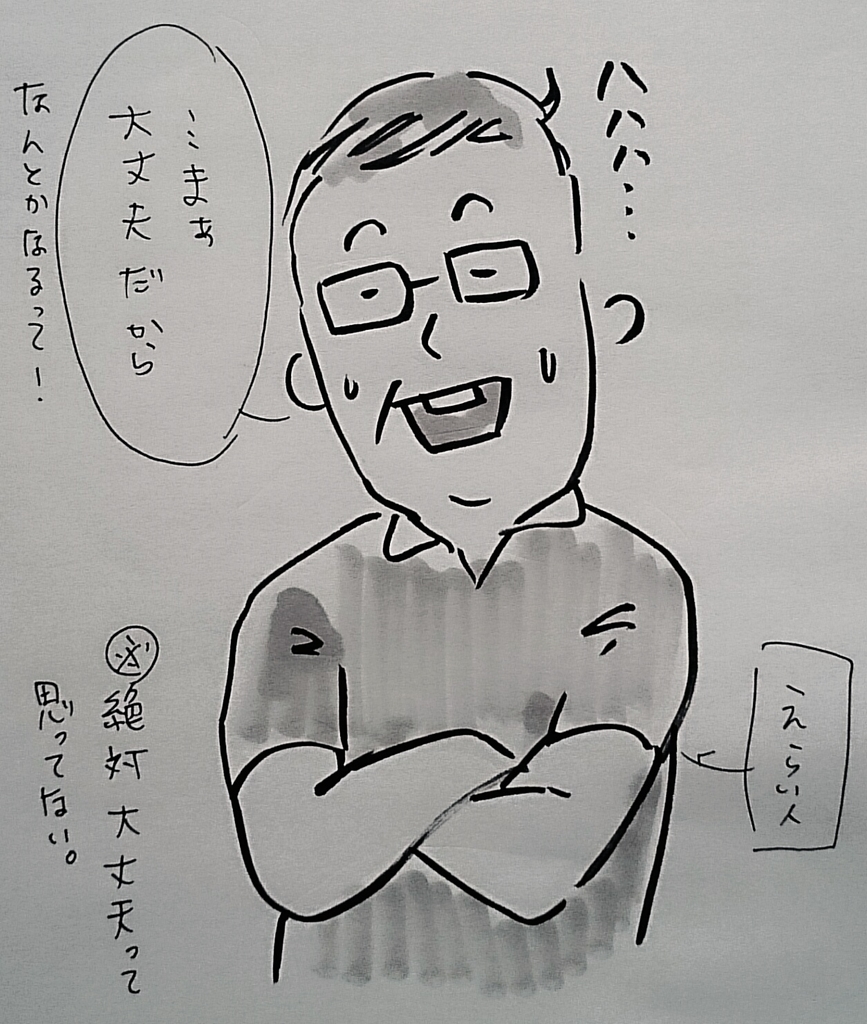 ハハハ…
…まぁ
大丈夫だから
なんとかなるって!
えらい人
絶対大丈夫って
思ってない。